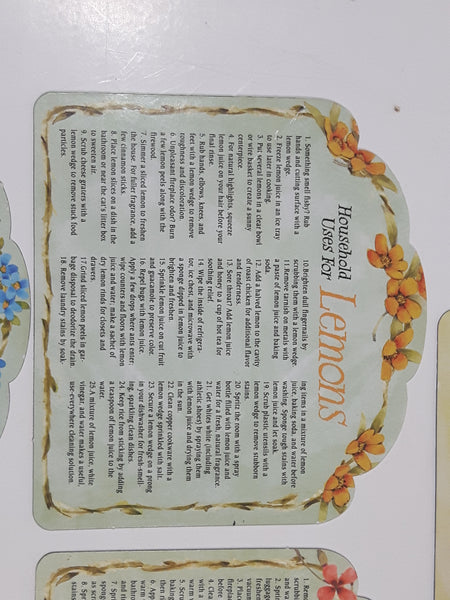 Household
Uses For
Lemons
1. Something smell fishy? Rub
hands and cutting surface with a
lemon wedge.
2. Freeze lemon juice in an ice tray
to use later in cooking.
3. Put several lemons in a clear bowl
or wire basket to create a sunny
centerpiece.
4. For natural highlights, squeeze
lemon juice on your hair before your
final rinse.
5. Rub hands, elbows, knees, and
feet with a lemon wedge to remove
roughness and discoloration.
6. Unpleasant fireplace odor? Burn
a few lemon peels along with the
firewood.
7. Simmer a sliced lemon to freshen
the house. For fuller fragrance, add a
few cinnamon sticks.
8. Place lemon slices on a dish in the
bathroom or near the cat's litter box
to sweeten air.
9. Scrub cheese graters with a
lemon wedge to remove stuck food
particles.
10 Brighten dull fingernails by
scrubbing them with a lemon wedge.
11 Remove tarnish on metals with
a paste of lemon juice and baking
soda.
12. Add a halved lemon to the cavity
of roast chicken for additional flavor
and tenderness.
13. Sore throat? Add lemon juice
and honey to a cup of hot tea for
soothing relief
14. Wipe the inside of refrigera-
tor, ice chest, and microwave with
a sponge dipped in lemon juice to
brighten and freshen.
15. Sprinkle lemon juice on cut fruit
and guacamole to preserve color.
16. Repel bugs with lemon juice.
Apply a few drops where ants enter;
wipe counters and floors with lemon
juice and water; make a sachet of
dry lemon rinds for closets and
drawers.
17 Grind sliced lemon peels in gar-
bage disposal to deodorize the drain.
18. Remove laundry stains by soak-
ing items in a mixture of lemon
juice, baking soda, and water before
washing. Sponge tough stains with
lemon juice and let soak.
19. Scrub plastic utensils with a
lemon wedge to remove stubborn
stains.
20. Spritz the room with a spray
bottle filled with lemon juice and
water for a fresh, natural fragrance
21. Get whites white (including
athletic shoes) by spraying them
with lemon juice and drying them
in the sun.
22. Clean copper cookware with a
lemon wedge sprinkled with salt.
23. Secure a lemon wedge on a prong
in your dishwasher for fresh-smell-
ing, sparkling clean dishes.
24. Keep rice from sticking by adding
a teaspoon of lemon juice to the
water.
25. A mixture of lemon juice, white
vinegar, and water makes a useful,
use-everywhere cleaning solution.